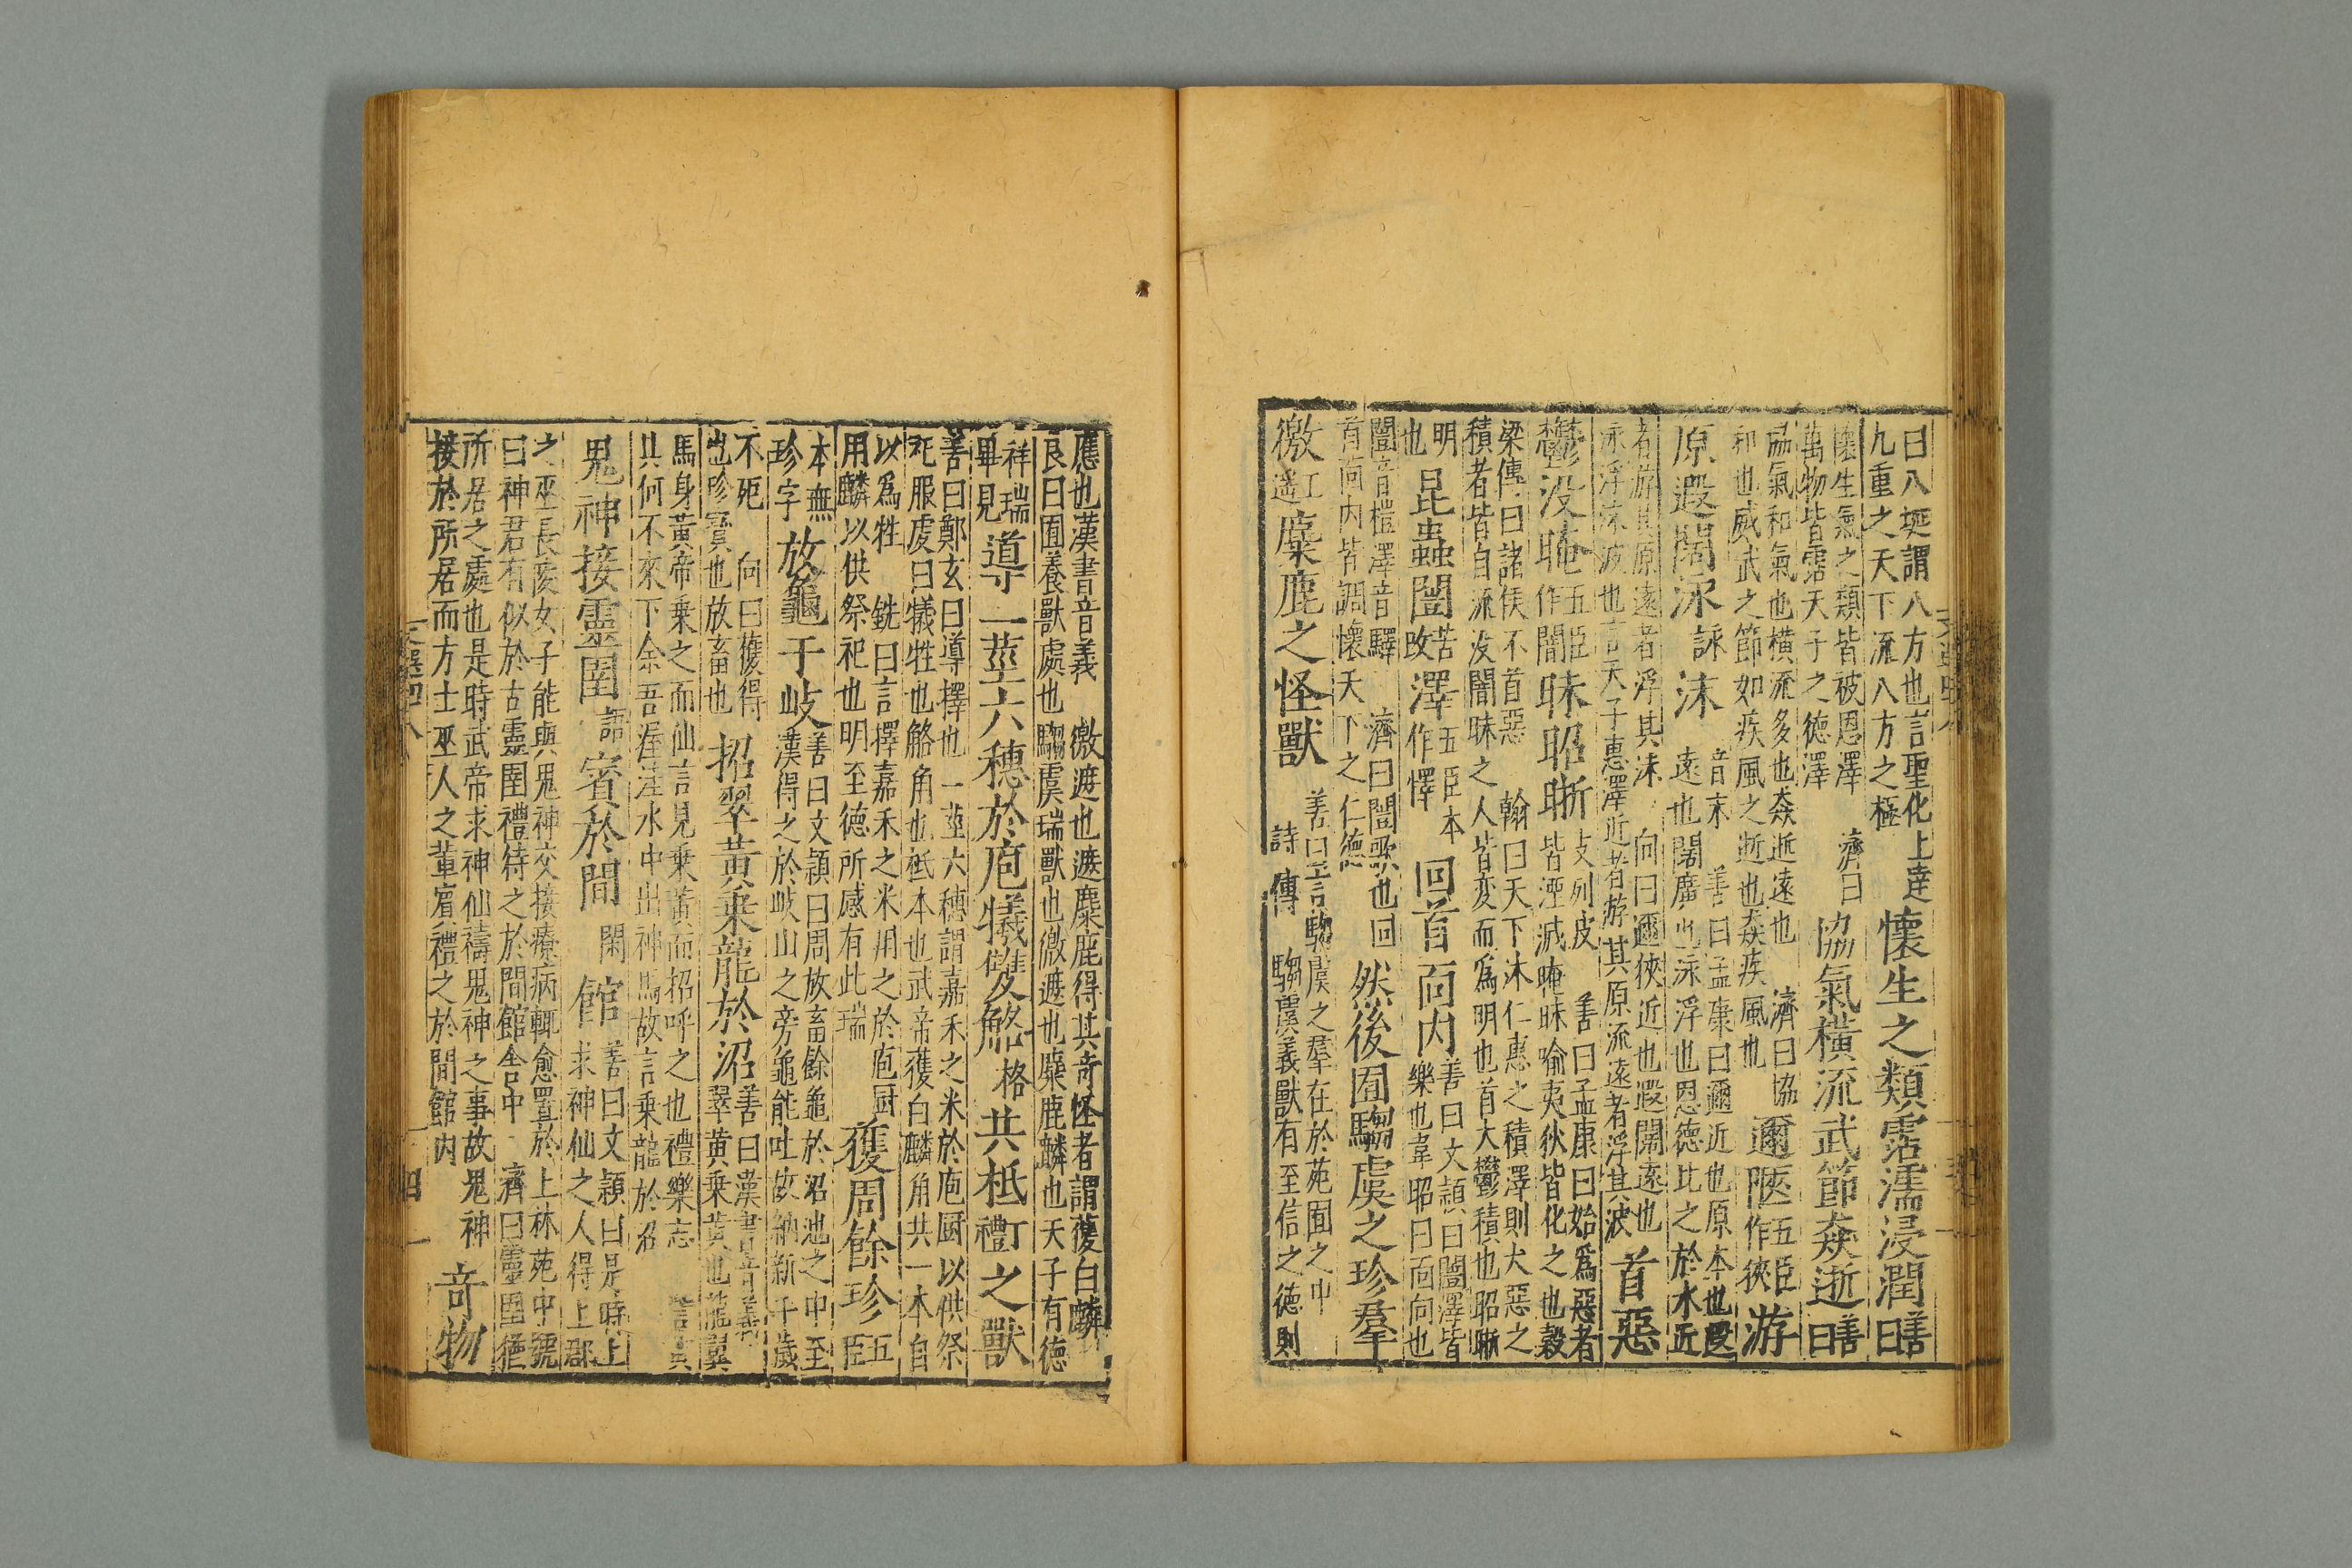 曰八埏謂八方也言聖化上達
九重之天下流八方之極
懷生之類霑濡浸潤
善曰
懷生氣之類皆被恩澤
濟曰
萬物皆霑天子之德澤
協氣橫流武節猋逝
善曰
協氣和氣也橫流多也猋逝遠也
濟曰協
和也威武之節如疾風之逝也猋疾風也
邇陿
五臣
作狹
游
原遐闊泳
詠
沫
音末
善曰孟康曰邇近也原本也遐
遠也闊廣也泳浮也恩德比之於水近
者游其原遠者浮其沫
向曰邇狹近也遐闊遠也
泳浮沫波也言天子惠澤近者游其原流遠者浮其波
首惡
鬱没晻
五臣
作闇
昧昭晰
皆湮滅
善曰孟康曰始爲惡者
晻昧喻夷狄皆化之也穀
梁傳曰諸侯不首惡
翰曰天下沐仁惠之積澤則大惡之
積者皆自流没闇昧之人皆変而爲明也首大鬱積也昭晰
明
也
昆蟲闓
苦
改
澤
五臣本
作懌
回首面内
善曰文頴曰闓澤皆
樂也韋昭曰面向也
闓音愷澤音驛
濟曰闓歌也回
首向内皆調懷天下之仁德
然後囿騶虞之珍羣
善曰言騶虞之羣在於苑囿之中
詩傳
騶虞義獸有至信之德則
徼
江
遥
麋鹿之怪獸
應也漢書音義
徼遮也遮麋鹿得其奇怪者謂獲白麟
良曰囿養獸處也騶虞瑞獸也徼遮也麋鹿麟也天子有德
祥瑞
畢見
導一莖六穗於庖犧雙觡
格
共柢
丁
禮
之獸
善曰鄭玄曰導擇也一莖六穗謂嘉禾之米於庖厨以供祭
祀服虔曰犧牲也觡角也柢本也武帝獲白麟角共一本自
以爲牲
銑曰言擇嘉禾之米用之於庖厨
用麟以供祭祀也明至德所感有此瑞
獲周餘珍
五
臣
本無
珍字
放龜于岐
善曰文頴曰周放畜餘龜於沼池之中至
漢得之於岐山之旁龜能吐故納新千歲
不死
向曰獲得
也珍寳也放畜也
招翠黃乘龍於沼
善曰漢書音義
翠黃乘黃也龍翼
馬身黃帝乘之而仙言見乘黃而招呼之也禮樂志
其何不來下余吾渥洼水中出神馬故言乘龍於沼
鬼神接靈圉
語
賓於閒
閑
館
善曰文頴曰是時上
求神仙之人得上郡
之巫長陵女子能與鬼神交接療病輒愈置於上林苑中號
曰神君有似於古靈圉禮待之於閒館舍中
濟曰靈圉仙
所居之處也是時武帝求神仙禱鬼神之事故鬼神
接於所居而方士巫人之輩賓禮之於閒館内
奇物